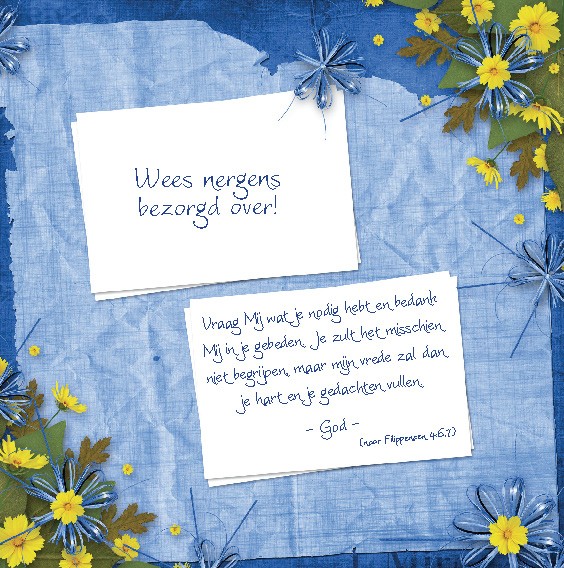 Wees nergens
bezorgd over!
Vraag Mij wat je nodig hebt en bedank
Mij in je gebeden. Je zult het misschien
niet begrijpen, maar mijn vrede zal dan
je hart en je gedachten vullen.
- God -
(naar Filippenzen 4:6,7)